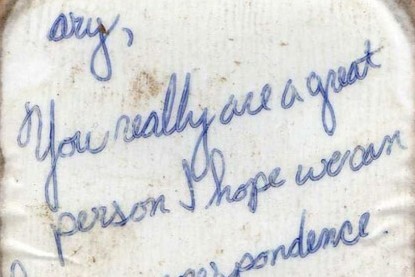 ary,
You really are a great
person I hope we can
pondence.